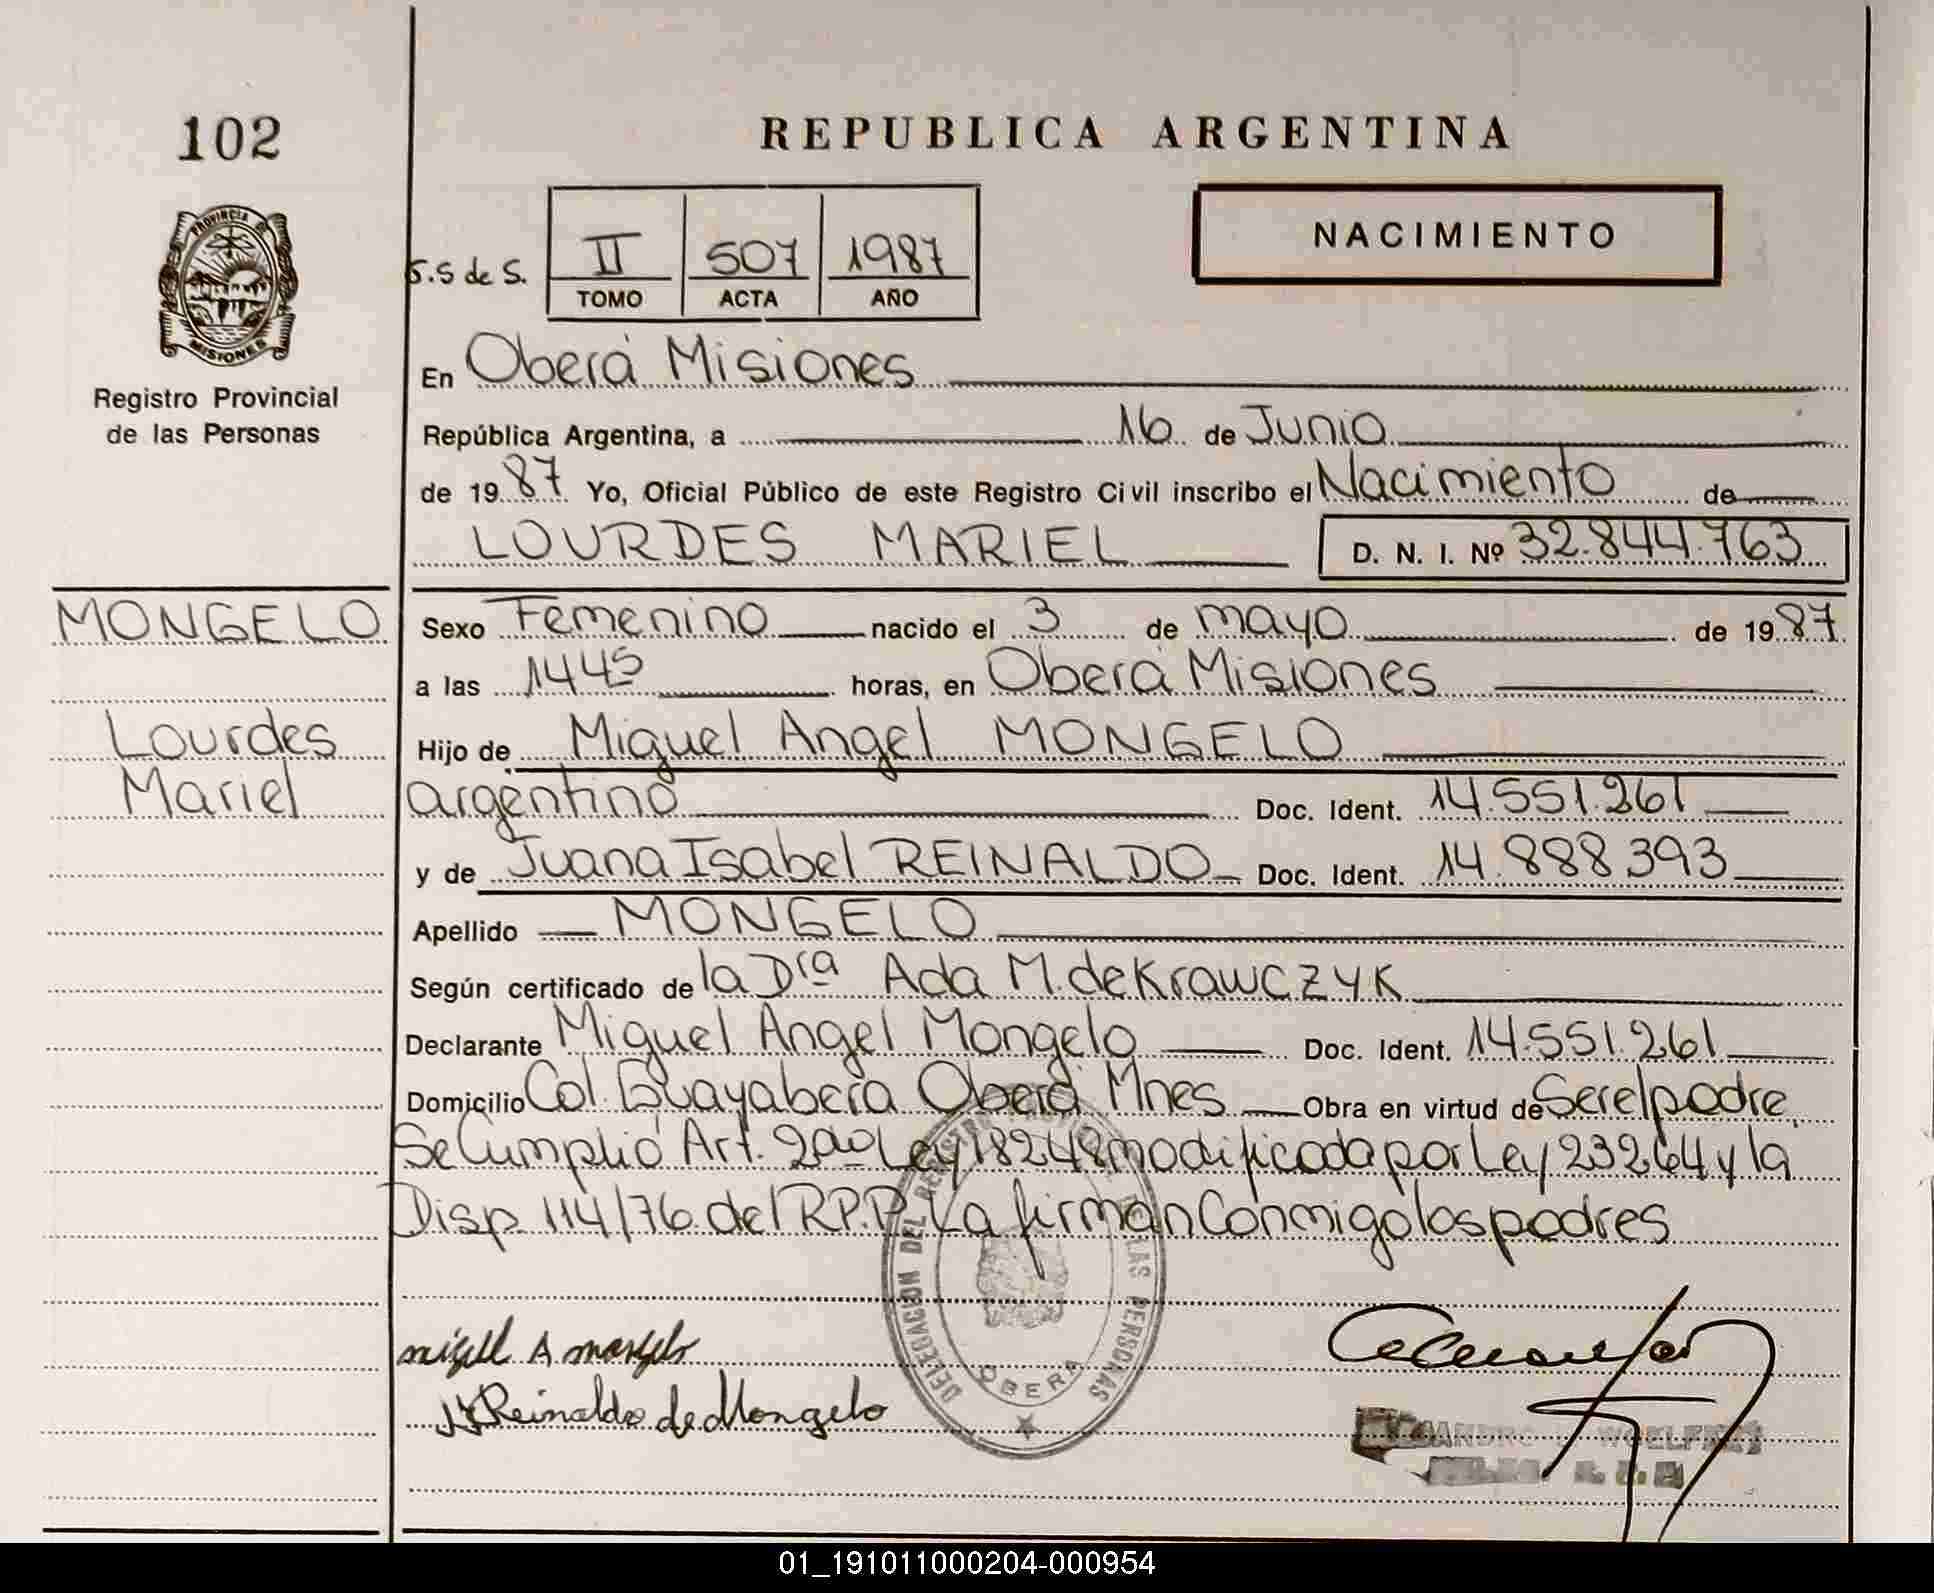 102
REPUBLICA ARGENTINA
PROVINCIA DE
MISIONES
Registro Provincial
de las Personas
S.S de S.
II 507 1987
TOMO ACTA AÑO
NACIMIENTO
En Oberá Misiones
República Argentina, a 16 de Junio
de 1987 Yo, Oficial Público de este Registro Civil inscribo el Nacimiento de
LOURDES MARIEL D. N. I. Nº 32.844.763
MONGELO
Lourdes
Mariel
Sexo Femenino nacido el 3 de mayo de 1987
a las 1445 horas, en Oberá Misiones
Hijo de Miguel Angel MONGELO
argentino Doc. Ident. 14.551.261
y de Juana Isabel REINALDO Doc. Ident. 14.888393
Apellido MONGELO
Según certificado de la Dra Ada M. de Krawczyk
Declarante Miguel Angel Mongelo Doc. Ident. 14.551.261
Domicilio Col. Guayabera Oberá Mnes Obra en virtud de Ser el padre
Se Cumplió Art. 2do Ley 18248 modificada por Ley 23264 y la
Disp. 114/76 del R.P.P. La firman Conmigo los padres
DELEGACION DEL REGISTRO PROVINCIAL DE LAS PERSONAS
OBERA
Reinaldo de Mongelo
01_191011000204-000954